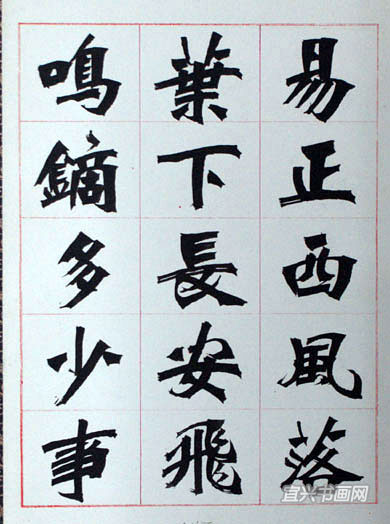 易正西風落
葉下長安飛
鳴鏑多少事
宜兴书画网